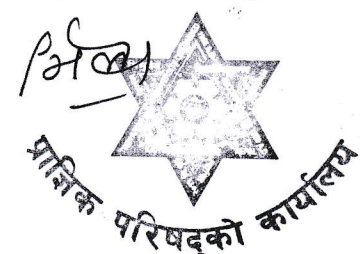 प्राज्ञिक परिषद्को कार्यालय